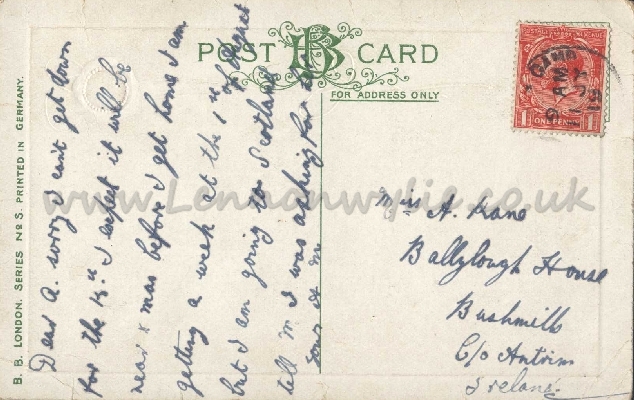 POST CARD
FOR ADDRESS ONLY
B. B. LONDON. SERIES No S. PRINTED IN GERMANY.
Dear A. sorry I can't get down
for the 12th I expect it will be
near x mas before I get home I am
getting a week at the 1st of August
but I am going to Scotland
tell M. I was asking for
your
Miss A. Kane
Ballylough House
Bushmills
C/o Antrim
Ireland
ONE PENNY
9 AM
11
www.Lennonwylie.co.uk